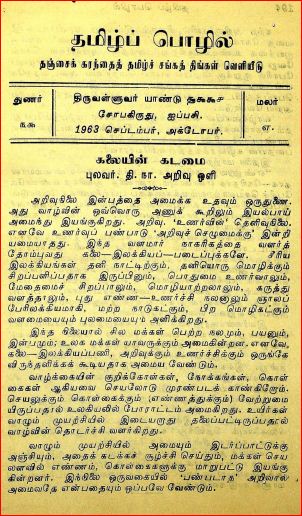 தமிழ்ப் பொழில்
தஞ்சைக் கரந்தைத் தமிழ்ச் சங்கத் திங்கள் வெளியீடு
துணர்
திருவள்ளுவர் யாண்டு
மலர்
சோபகிருது, ஐப்பசி.
1963 செப்டம்பர், அக்டோபர்.
எ.
கலையின் கடமை
புலவர். தி. நா. அறிவு ஒளி
அறிவுநிலை இன்பத்தை அமைக்க உதவும் ஒருதுணை.
அது வாழ்வின் ஒவ்வொரு அணுக் கூறிலும் இயல்பாய்
அமைந்து இயங்குகிறது. அறிவு, 'உணர்வின்' தெளிவுநிலை.
எனவே உணர்வுப் பண்பாடு 'அறிவுச் செழுமைக்கு' இன்றி
யமையாதது. இந்த வளமார் நாகரிகத்தை வளர்த்
தோம்புவது கலை—இலக்கியப்—படைப்புக்களே. சீரிய
இலக்கியங்கள் தனி நாட்டிற்கும், தனியொரு மொழிக்கும்
சிறப்பளிப்பதாக இருப்பினும், பொதுமை உணர்வாலும்,
மேதைமைச் சிறப்பாலும், மொழியாற்றலாலும், கருத்து
வளத்தாலும், புது எண்ண—உணர்ச்சி நலனும் ஞாலப்
பேரிலக்கியமாகி, மற்ற நாடுகட்கும், பிற மொழிகட்கும்
வளமையையும் புலமையையும் அளிக்கிறது.
இந்த நிலையால் சில மக்கள் பெற்ற நலமும், பயனும்,
இன்பமும்; உலக மக்கள் யாவருக்கும் அமைகின்றன. எனவே,
கலை—இலக்கியப்பணி, அறிவுக்கும் உணர்ச்சிக்கும் ஒருங்கே
விருந்தளிக்கக் கூடியதாக அமைய வேண்டும்.
வாழ்க்கையின் குறிக்கோள்கள், நோக்கங்கள், கொள்
கைகள் ஆகியவை செயலோடு முரண்படக் காண்கிறோம்.
செயலுக்கும் கொள்கைக்கும் (எண்ணத்துக்கும்) வேற்றுமை
யிருப்பதால் உலகியலில் போராட்டம் அமைகிறது. உயிர்கள்
வாழும் முயற்சியில் இடையூறு தலைப்பட்டிருப்பதால்
வாழ்வின் தொடர்ச்சி வளர்கிறது.
வாழும் முயற்சியில் அமையும் இடர்ப்பாட்டுக்கு
அஞ்சியும், அதைக் கடக்கச் சூழ்ச்சி செய்தும், மக்கள் செய
லளவில் எண்ணம், கொள்கைகளுக்கு மாறுபட்டு இயங்கு
கின்றனர். இந்நிலை ஒருவகையில் 'பண்படாத' அறிவால்
அமைவதே என்பதையும் ஒப்பவே வேண்டும்.